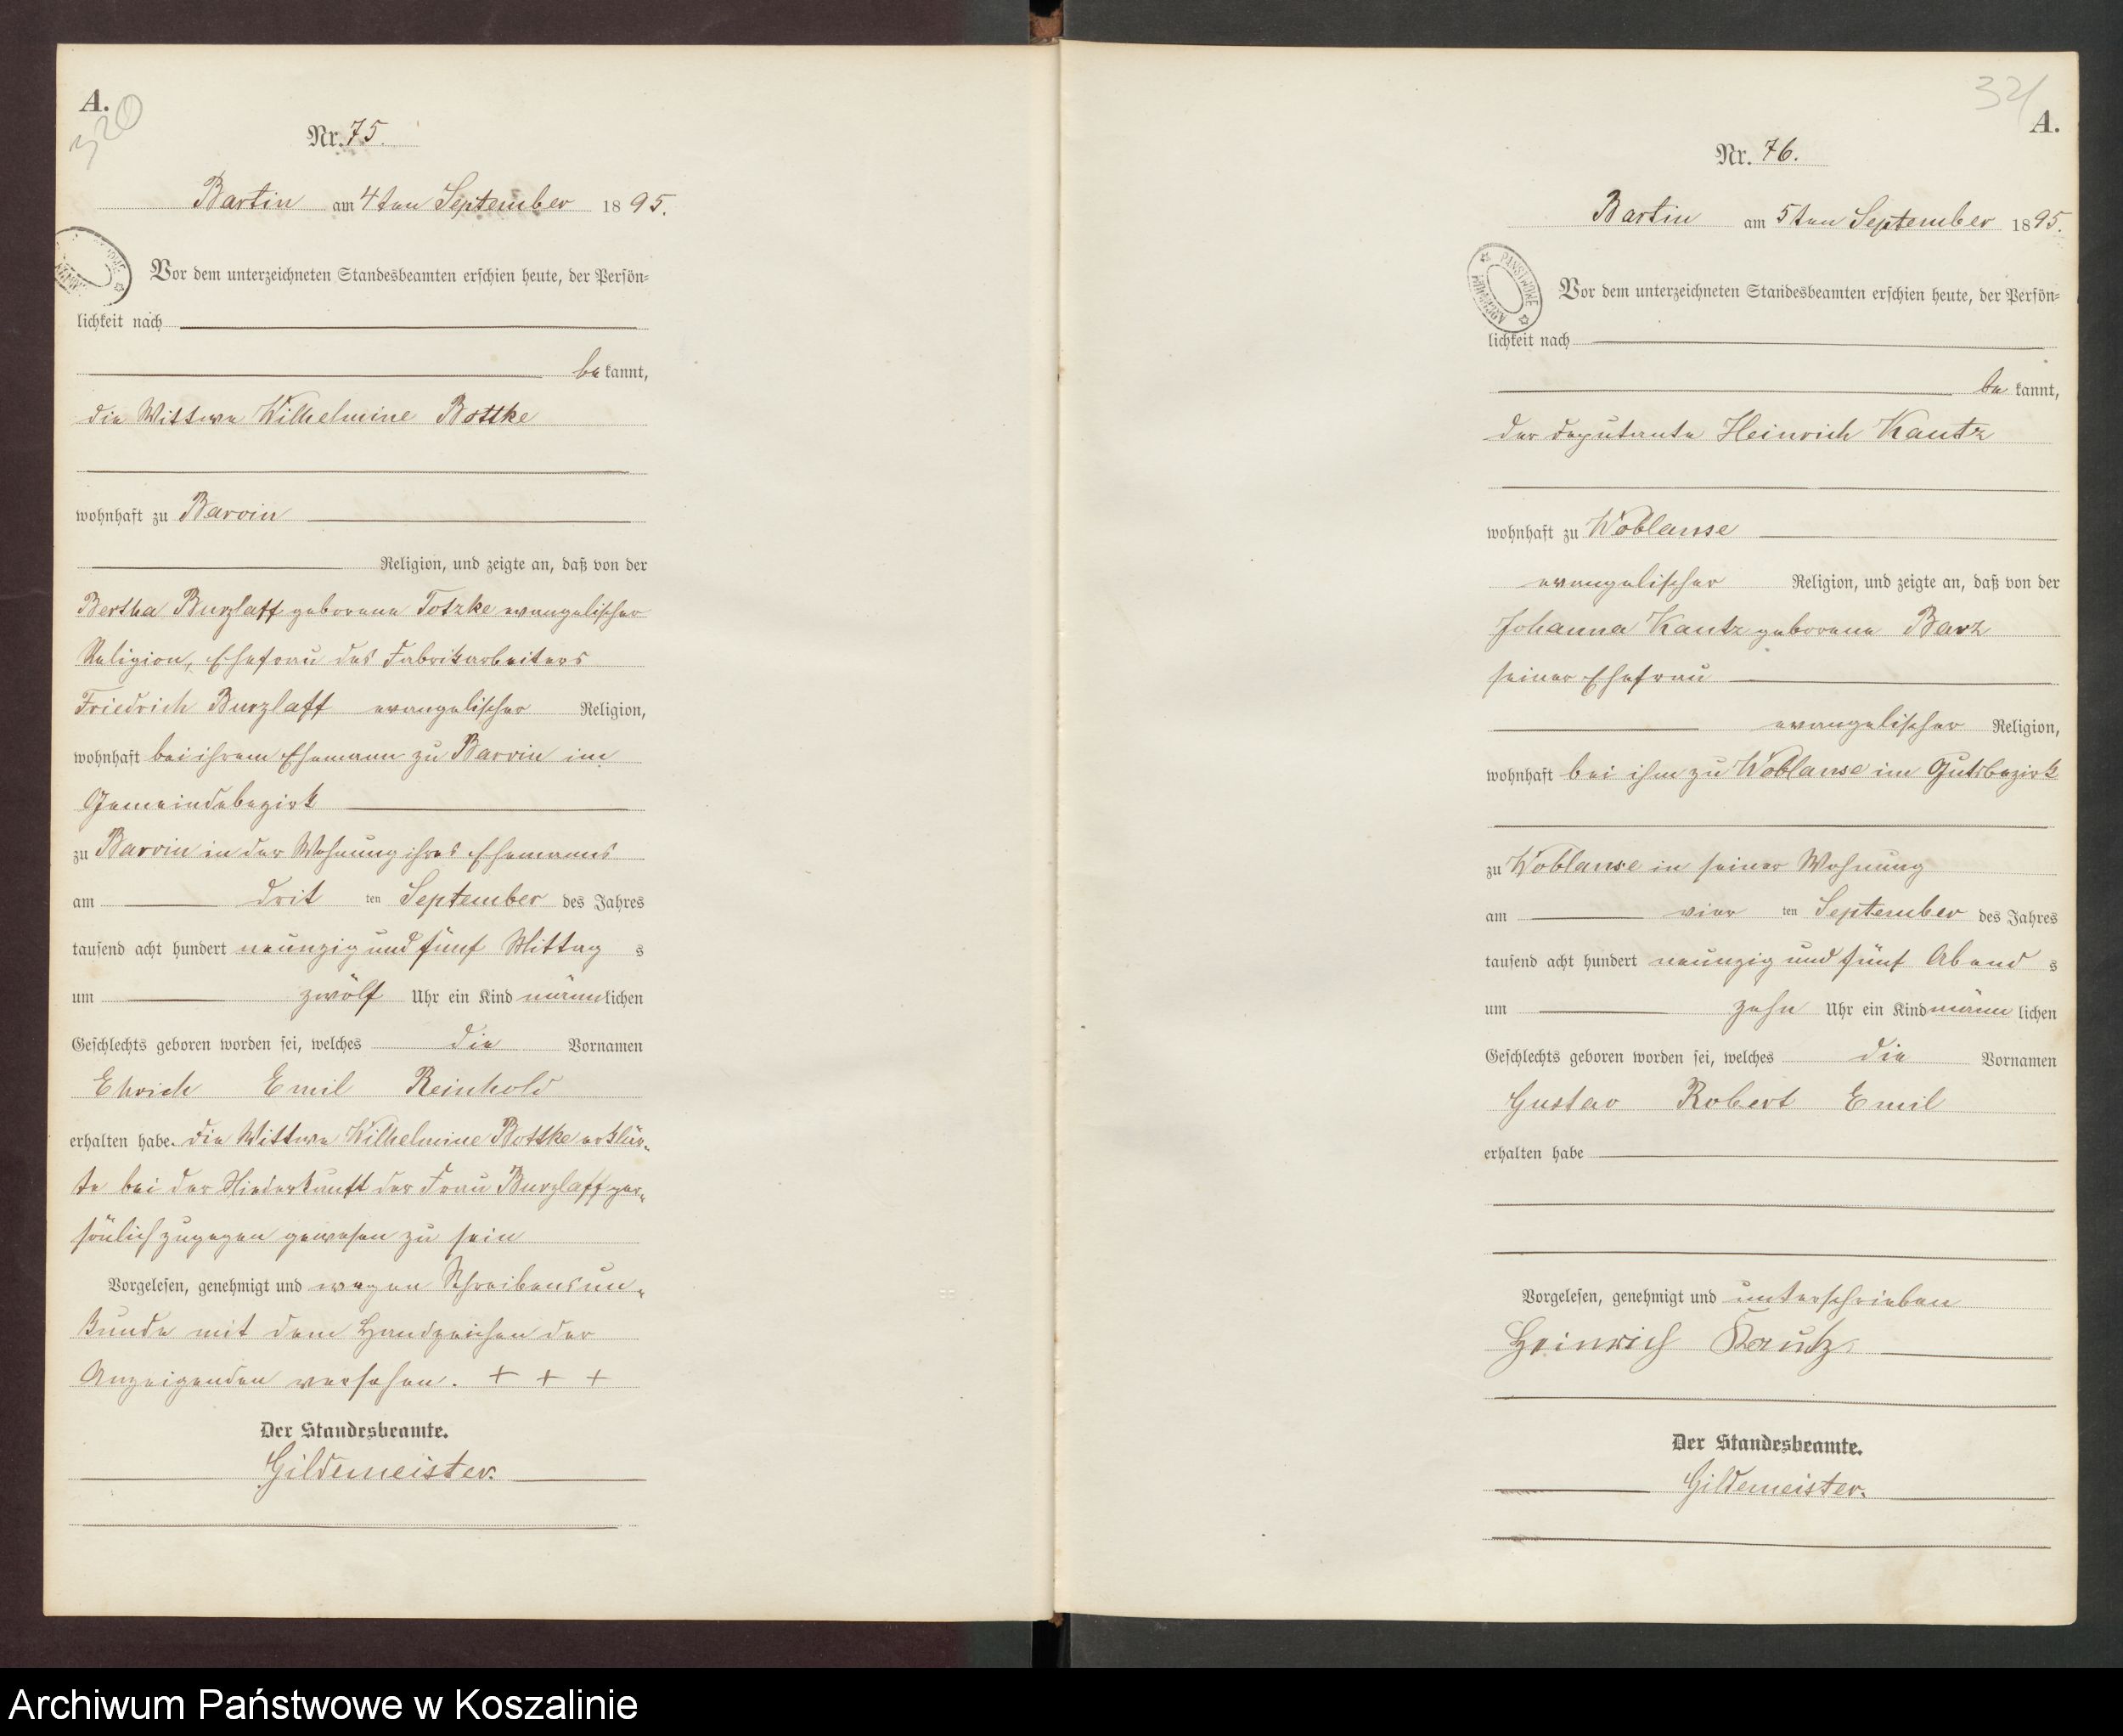 A.
320
Nr. 75.
Bartin am 4ten September 1895.
Vor dem unterzeichneten Standesbeamten erschien heute, der Persön=
lichkeit nach
bekannt,
die Wittwe Wilhelmine Bottke
wohnhaft zu Barvin
Religion, und zeigte an, daß von der
Bertha Burzlaff geborene Totzke evangelischer
Religion, Ehefrau des Fabrikarbeiters
Friedrich Burzlaff evangelischer Religion,
wohnhaft bei ihrem Ehemann zu Barvin im
Gemeindebezirk
zu Barvin in der Wohnung ihres Ehemanns
am drit ten September des Jahres
tausend acht hundert neunzig und fünf Mittag s
um zwölf Uhr ein Kind männlichen
Geschlechts geboren worden sei, welches die Vornamen
Ehrich Emil Reinhold
erhalten habe. die Wittwe Wilhelmine Bottke erklär-
te bei der Niederkunft der Frau Burzlaff per-
sönlich zugegen gewesen zu sein
Vorgelesen, genehmigt und wegen Schreibensun-
kunde mit dem Handzeichen der
Anzeigenden versehen. + + +
Der Standesbeamte.
Gildemeister.
321
A.
Nr. 76.
Bartin am 5ten September 1895.
PANSTWOWE
ARCHIWUM
Vor dem unterzeichneten Standesbeamten erschien heute, der Persön=
lichkeit nach
be kannt,
der deputante Heinrich Kautz
wohnhaft zu Woblanse
evangelischer Religion, und zeigte an, daß von der
Johanna Kautz geborene Barz
seiner Ehefrau
evangelischer Religion,
wohnhaft bei ihm zu Woblanse im Gutsbezirk
zu Woblanse in seiner Wohnung
am vier ten September des Jahres
tausend acht hundert neunzig und fünf Abend s
um zehn Uhr ein Kind männ lichen
Geschlechts geboren worden sei, welches die Vornamen
Gustav Robert Emil
erhalten habe
Vorgelesen, genehmigt und unterschrieben
Heinrich Kautz
Der Standesbeamte.
Gildemeister.
Archiwum Państwowe w Koszalinie